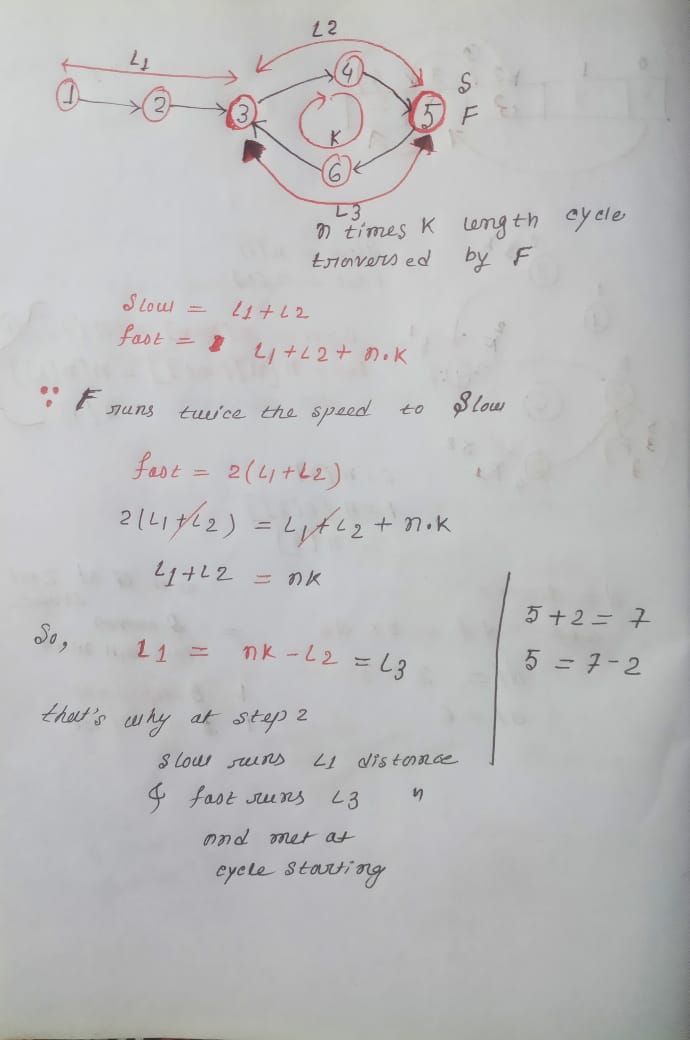 L2
L1
1 2 3 4 5 6
S
F
K
L3
n times K length cycle
traversed by F
Slow = L1+L2
fast = L1+L2+ n.K
∵ F runs twice the speed to Slow
fast = 2(L1+L2)
2(L1+L2) = L1+L2 + n.K
L1+L2 = nK
So, L1 = nK-L2 = L3
5+2 = 7
5 = 7-2
that's why at step 2
slow runs L1 distance
& fast runs L3 "
and met at
cycle starting